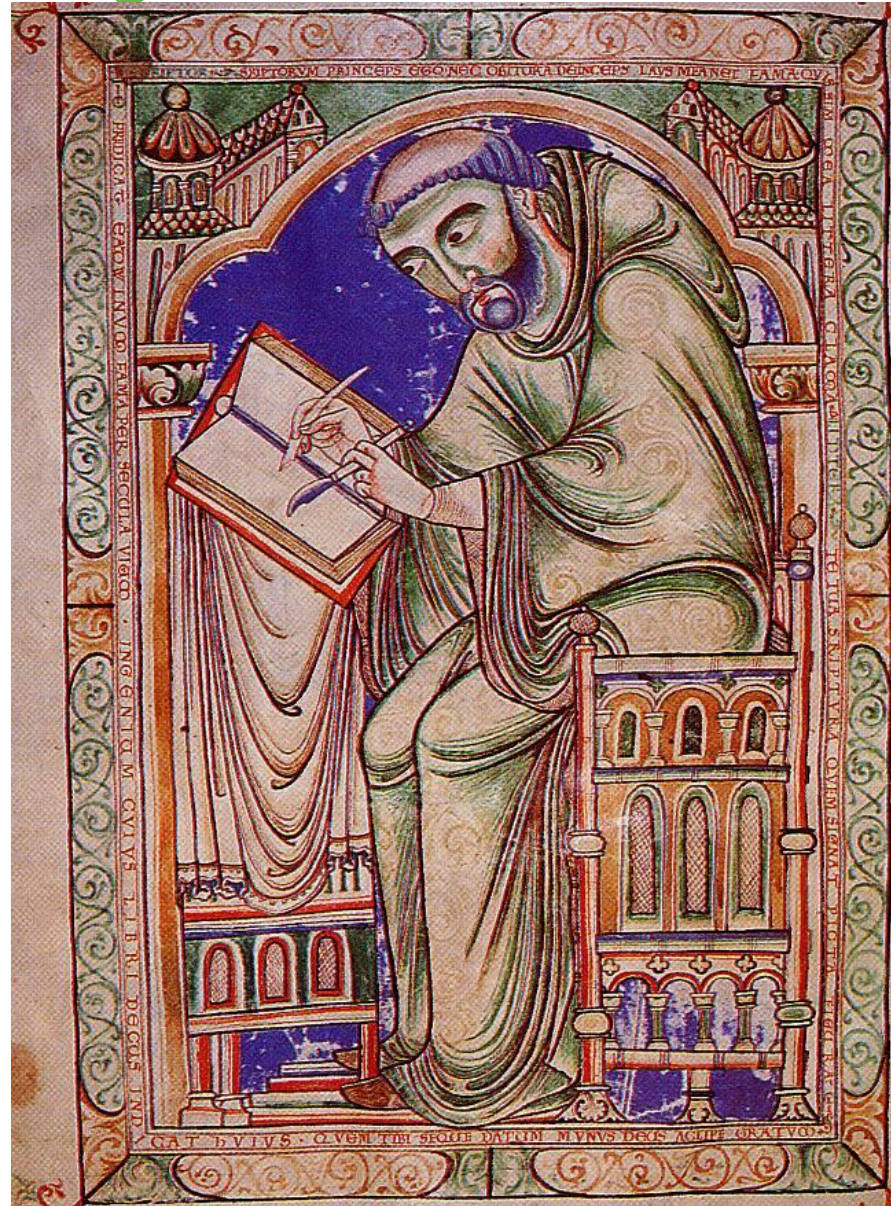 SRIPTORVM PRINCEPS EGO NEC OBITURA DEINCEPS LAVS MEA NEC FAMA QVI
SIM MEA LITTERA CLAMA SRIPTVRA QVEM SIGNAT PICTA FIGURA
PREDICAT EADWINVM FAMA PER SECULA VIVVM · INGENIUM CVIVS LIBRI DECUS IND
CAT hVIVS · QVEM TIBI SEQUE DATUM MVNVS DEUS ACCIPE GRATVM